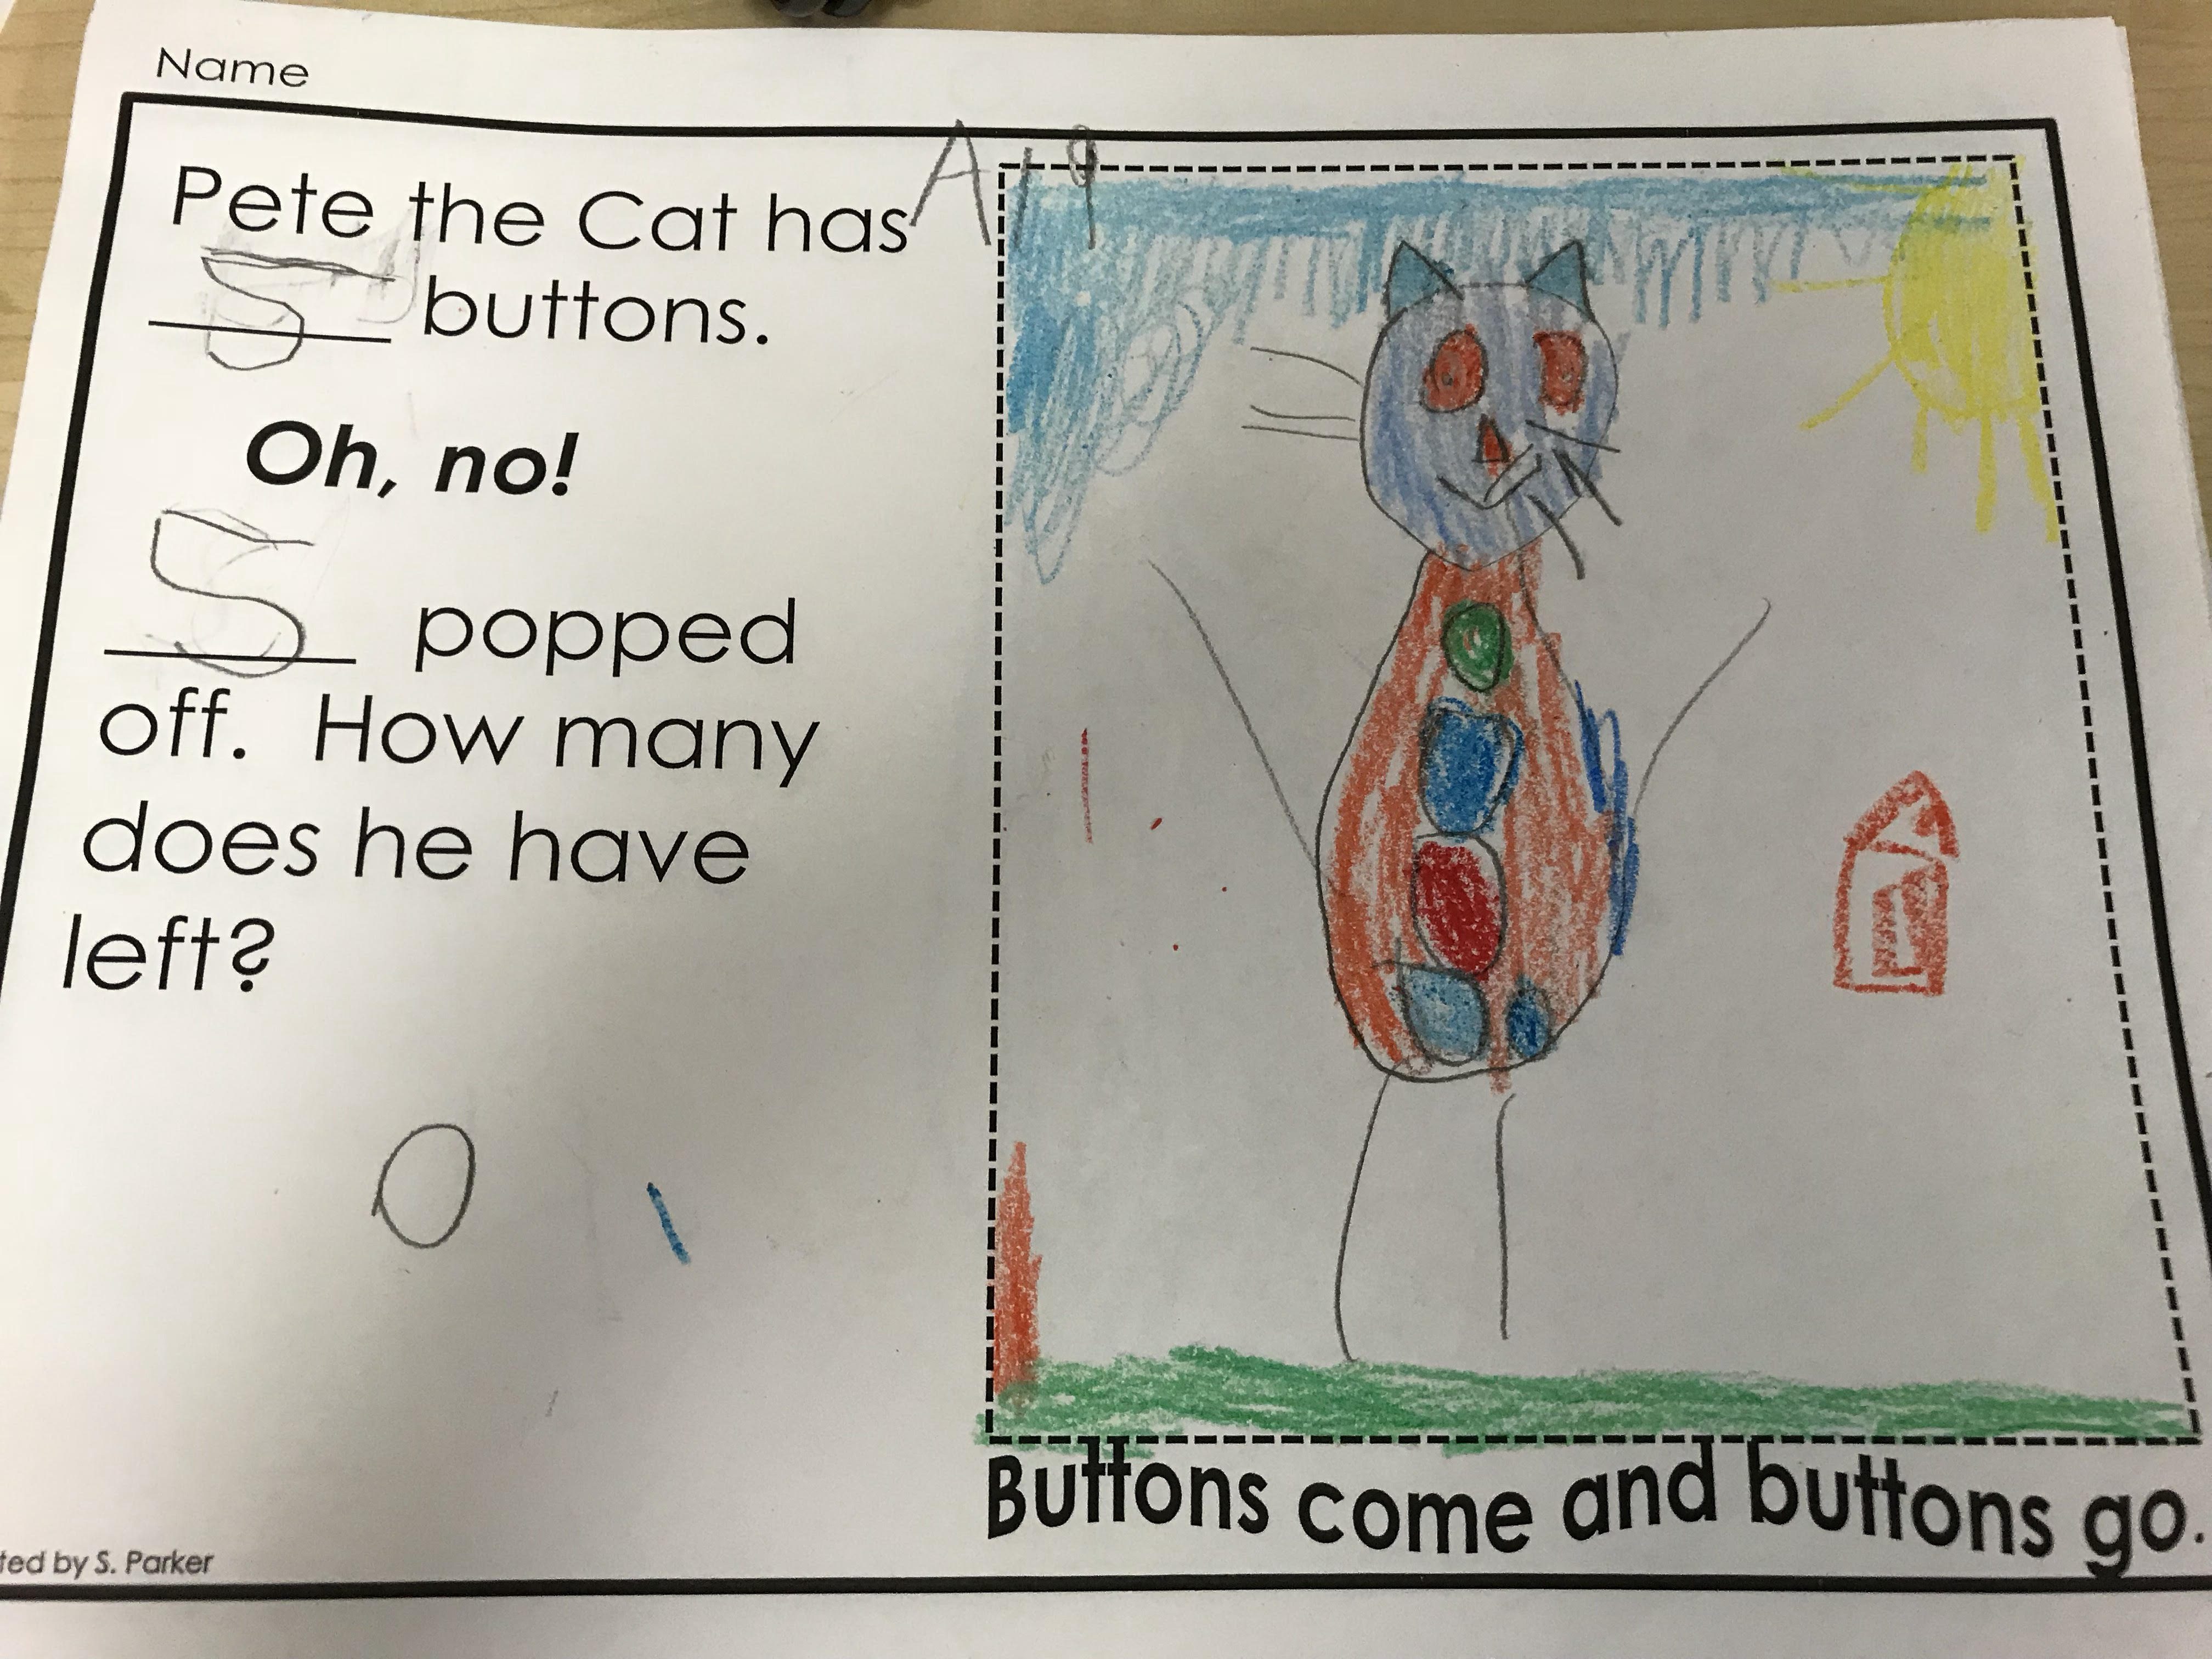 Name
Pete the Cat has
5 buttons.
Oh, no!
5 popped
off. How many
does he have
left?
0
Buttons come and buttons go.
ted by S. Parker